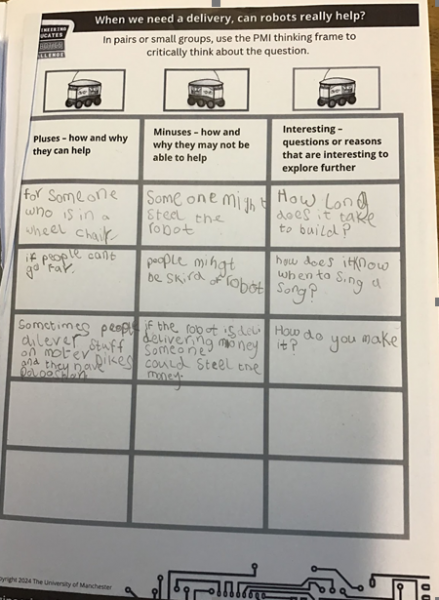 THINKING
UCATES
LLENGE
When we need a delivery, can robots really help?
In pairs or small groups, use the PMI thinking frame to
critically think about the question.
Pluses – how and why
they can help
Minuses – how and
why they may not be
able to help
Interesting –
questions or reasons
that are interesting to
explore further
for someone
who is in a
wheel chair.
Some one might
steel the
robot
How Long
does it take
to build?
if people cant
go far.
people mihgt
be skird of robot
how does it know
when to sing a
song?
Sometimes people
dilever stuff
on moter bikes
and they have
if the robot is deli
delivering money
someone
could steel the
money
How do you make
it?
pyright 2024 The University of Manchester